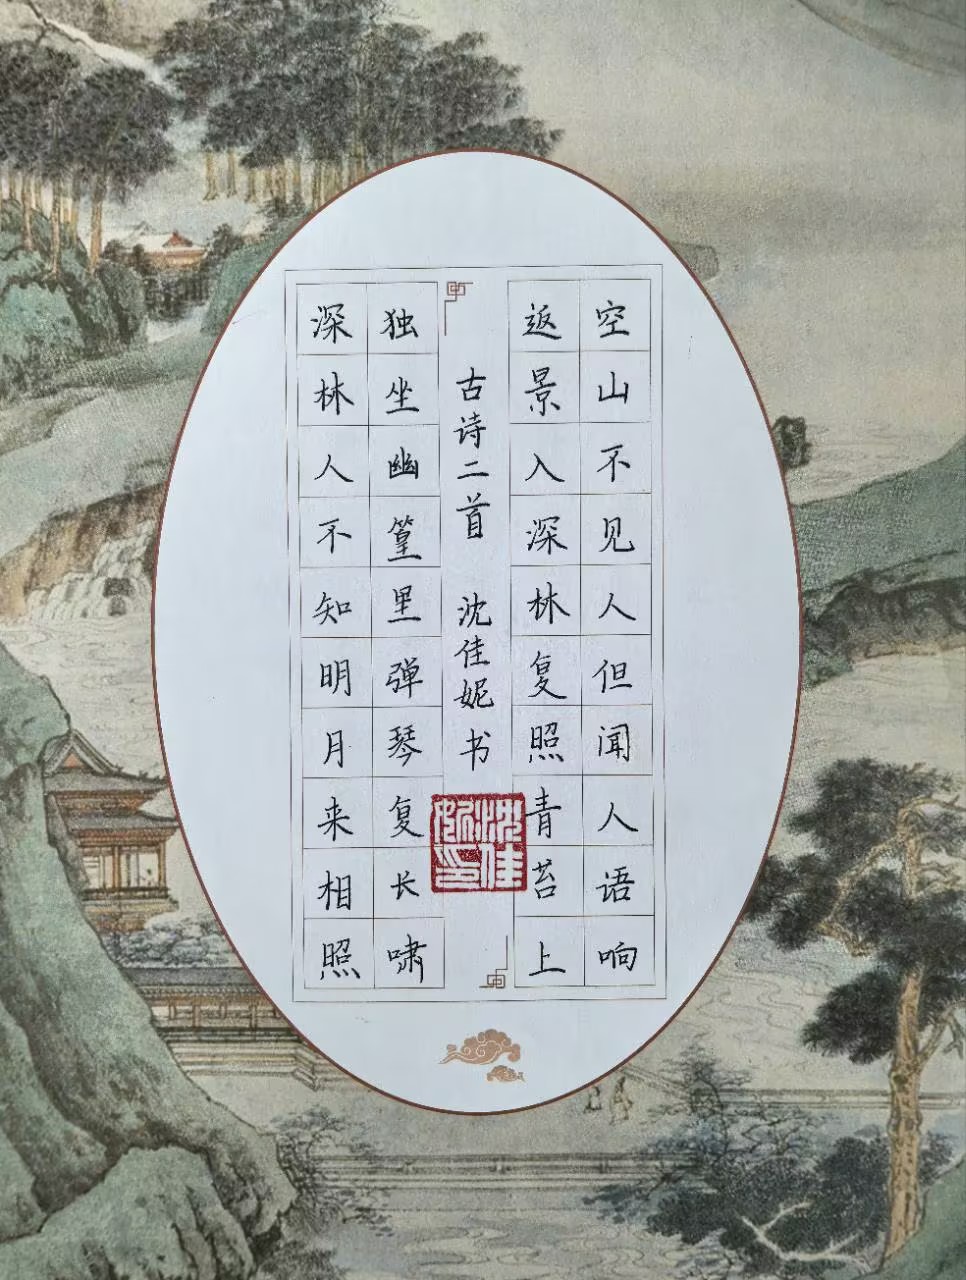 空山不见人但闻人语响
返景入深林复照青苔上
古诗二首 沈佳妮书
独坐幽篁里弹琴复长啸
深林人不知明月来相照
沈佳妮印